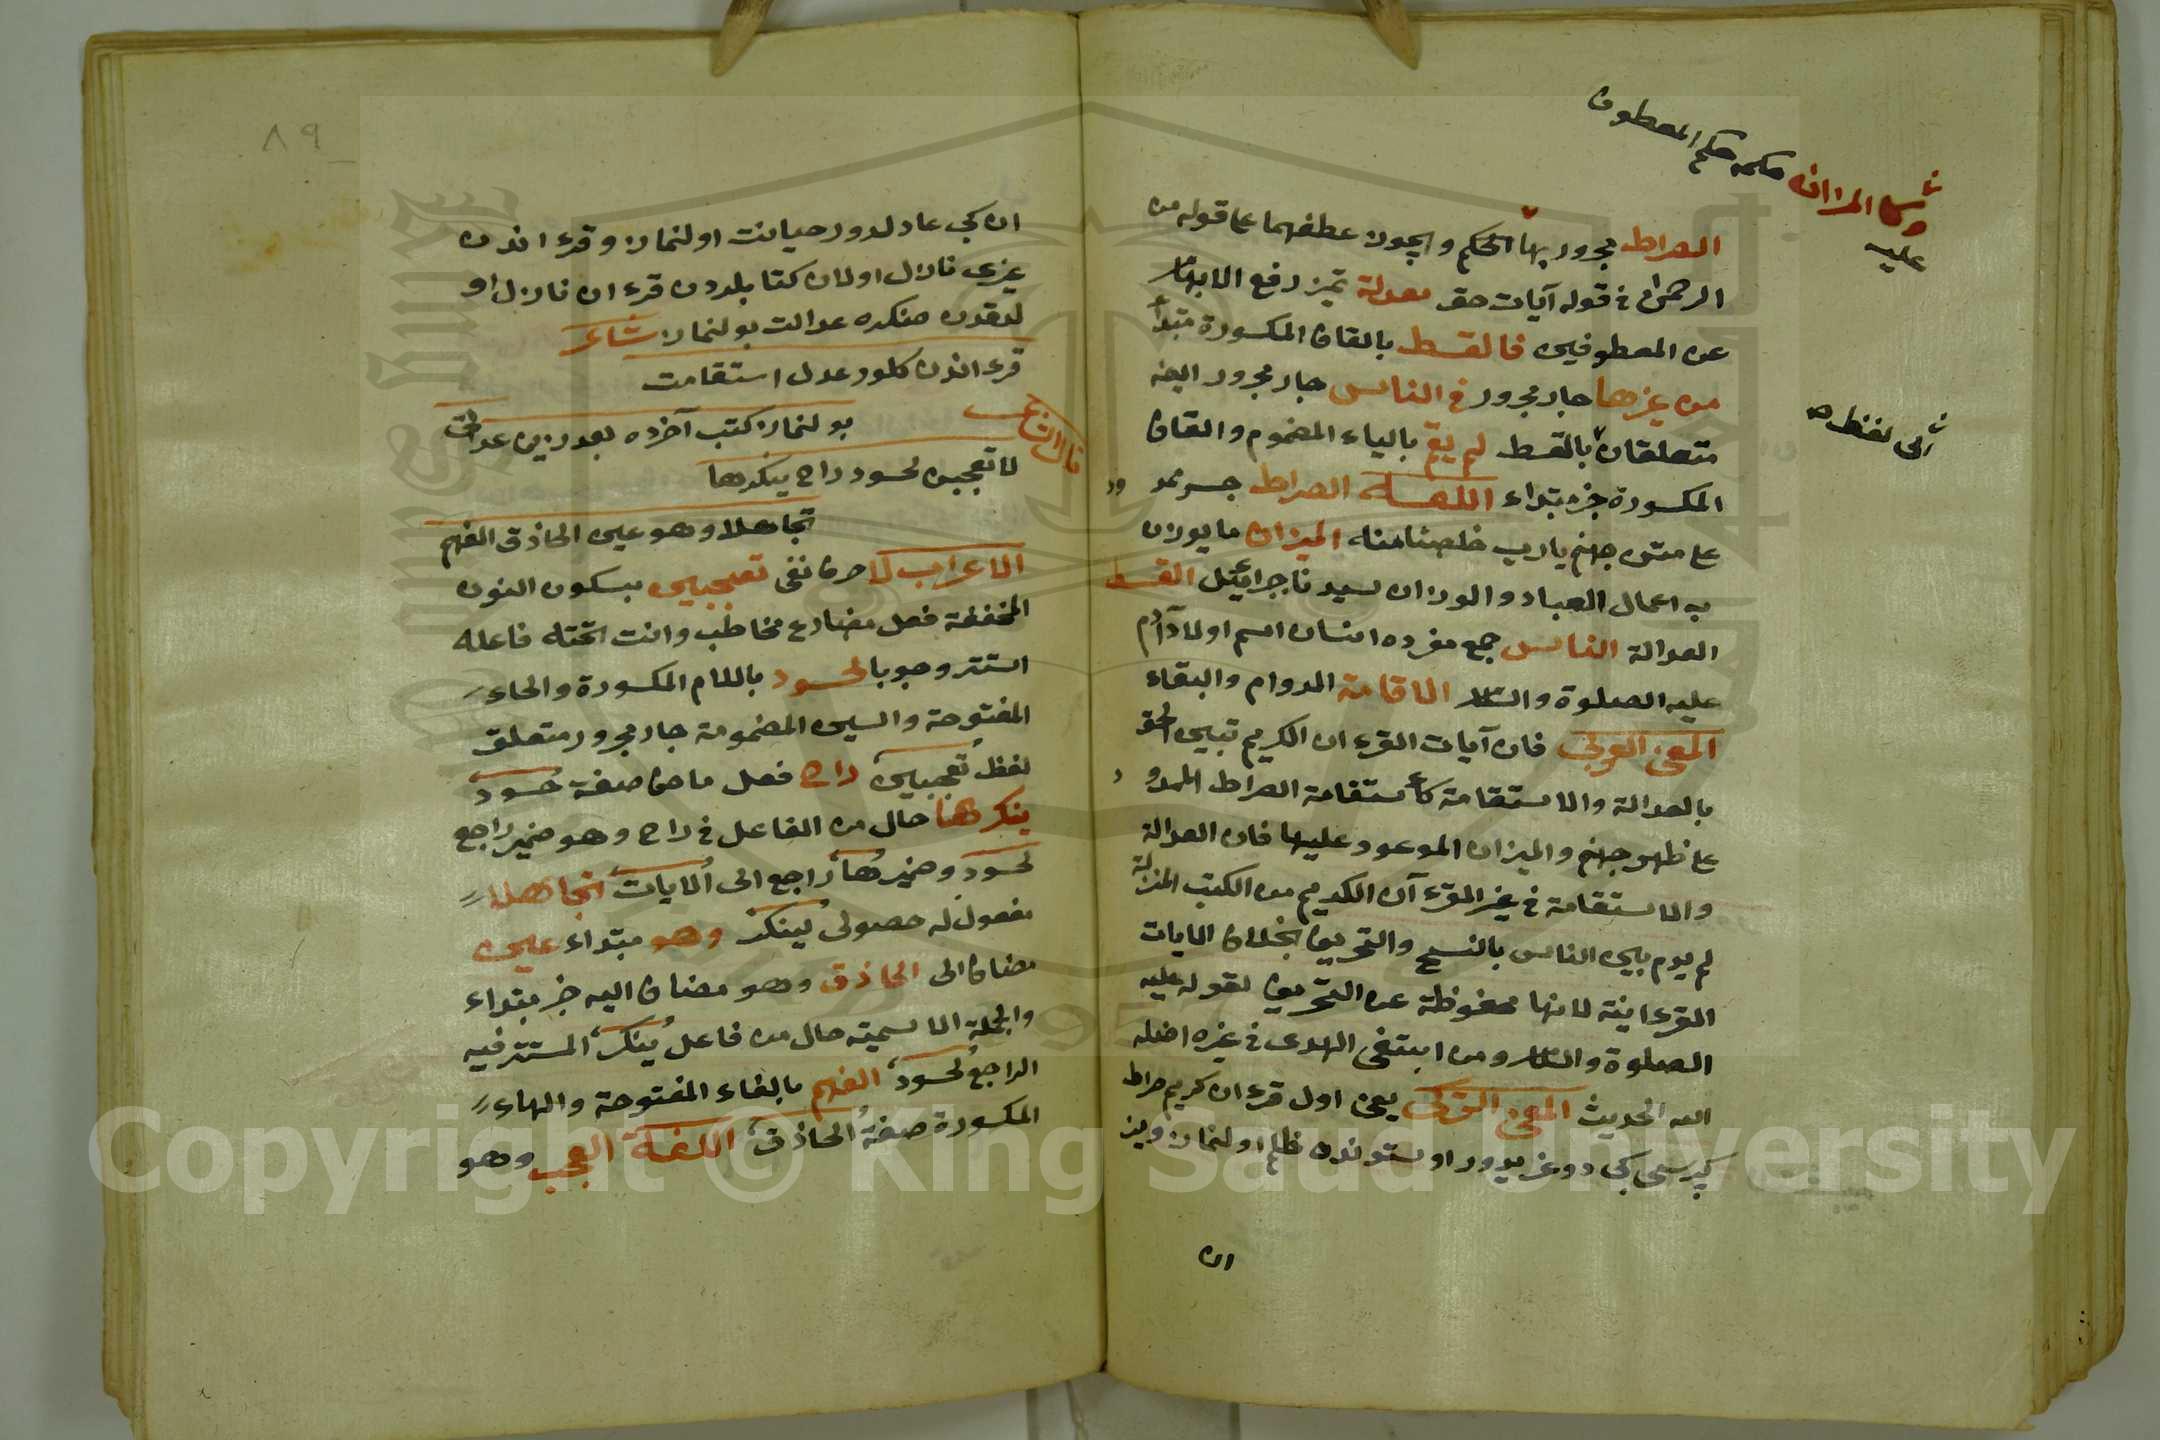 وكالميزان حكمه حكم المعطوف
عليه
الصراط مجرور بها الحكم ويجوز عطفهما على قوله من
الرحمن في قوله آيات حق معدلة تميز رفع الابهام
عن المعطوفين فالقسط بالقاف المكسورة مبتدأ
من غيرها جار مجرور في الناس جار مجرور ايضا
متعلقان بالقسط لم يقم بالياء المضموم والقاف
اى لفظ
المكسورة خبر مبتداء اللغة الصراط جسر ممدود
على متن جهنم يارب خلصنا منه الميزان ما يوزن
به اعمال العباد والوزان لسيدنا جبرائيل القسط
العدالة الناس جمع مفرده انسان اسم اولاد آدم
عليه الصلوة والسلام الاقامة الدوام والبقاء
المعنى العربى فان آيات القرءان الكريم تبين الحق
بالعدالة والاستقامة كاستقامة الصراط الممدود
على ظهر جهنم والميزان الموعود عليها فان العدالة
والاستقامة في غير القرءآن الكريم من الكتب المنزلة
لم يدم بين الناس بالنسخ والتحريف بخلاف الايات
القرءانية لانها محفوظة عن التحريف لقوله عليه
الصلوة والسلام ومن ابتغى الهدى في غيره اضله
الله الحديث المعنى التركى يعنى اول قرءان كريم صراط
كپرسى كبى دوغريدور اوستوندن ظلم اولنماز وميز
ان
٨٩
ان كبى عادلدور خيانت اولنماز وقرءاندن
غيرى نازل اولان كتابلردن قرءان نازل او
لدقدن صنكره عدالت بولنماز شاعر
قرءاندن كلور عدل استقامت
بولنماز كتب آخرده بعدزين عدالت
قال الناظم
لا تعجبن لحسود راح ينكرها
تجاهلا وهو عين الحاذق الفهم
الاعراب لا حرف نفى تعجبن بسكون النون
المخففة فعل مضارع مخاطب وانت تحته فاعله
استتر وجوبا لحسود باللام المكسورة والحاء
المفتوحة والسين المضمومة جار مجرور متعلق
لفظ تعجبن راح فعل ماض صفة حسود
ينكرها حال من الفاعل في راح وهو ضمير راجع
لحسود وضمير ها راجع الى الايات تجاهلا
مفعول له حصولى لينكر وهو مبتداء عين
مضاف الى الحاذق وهو مضاف اليه خبر مبتداء
والجملة الاسمية حال من فاعل ينكر المستتر فيه
الراجع لحسود الفهم بالفاء المفتوحة والهاء
المكسورة صفة الحاذق اللغة العجب وهو
Copyright © King Saud University